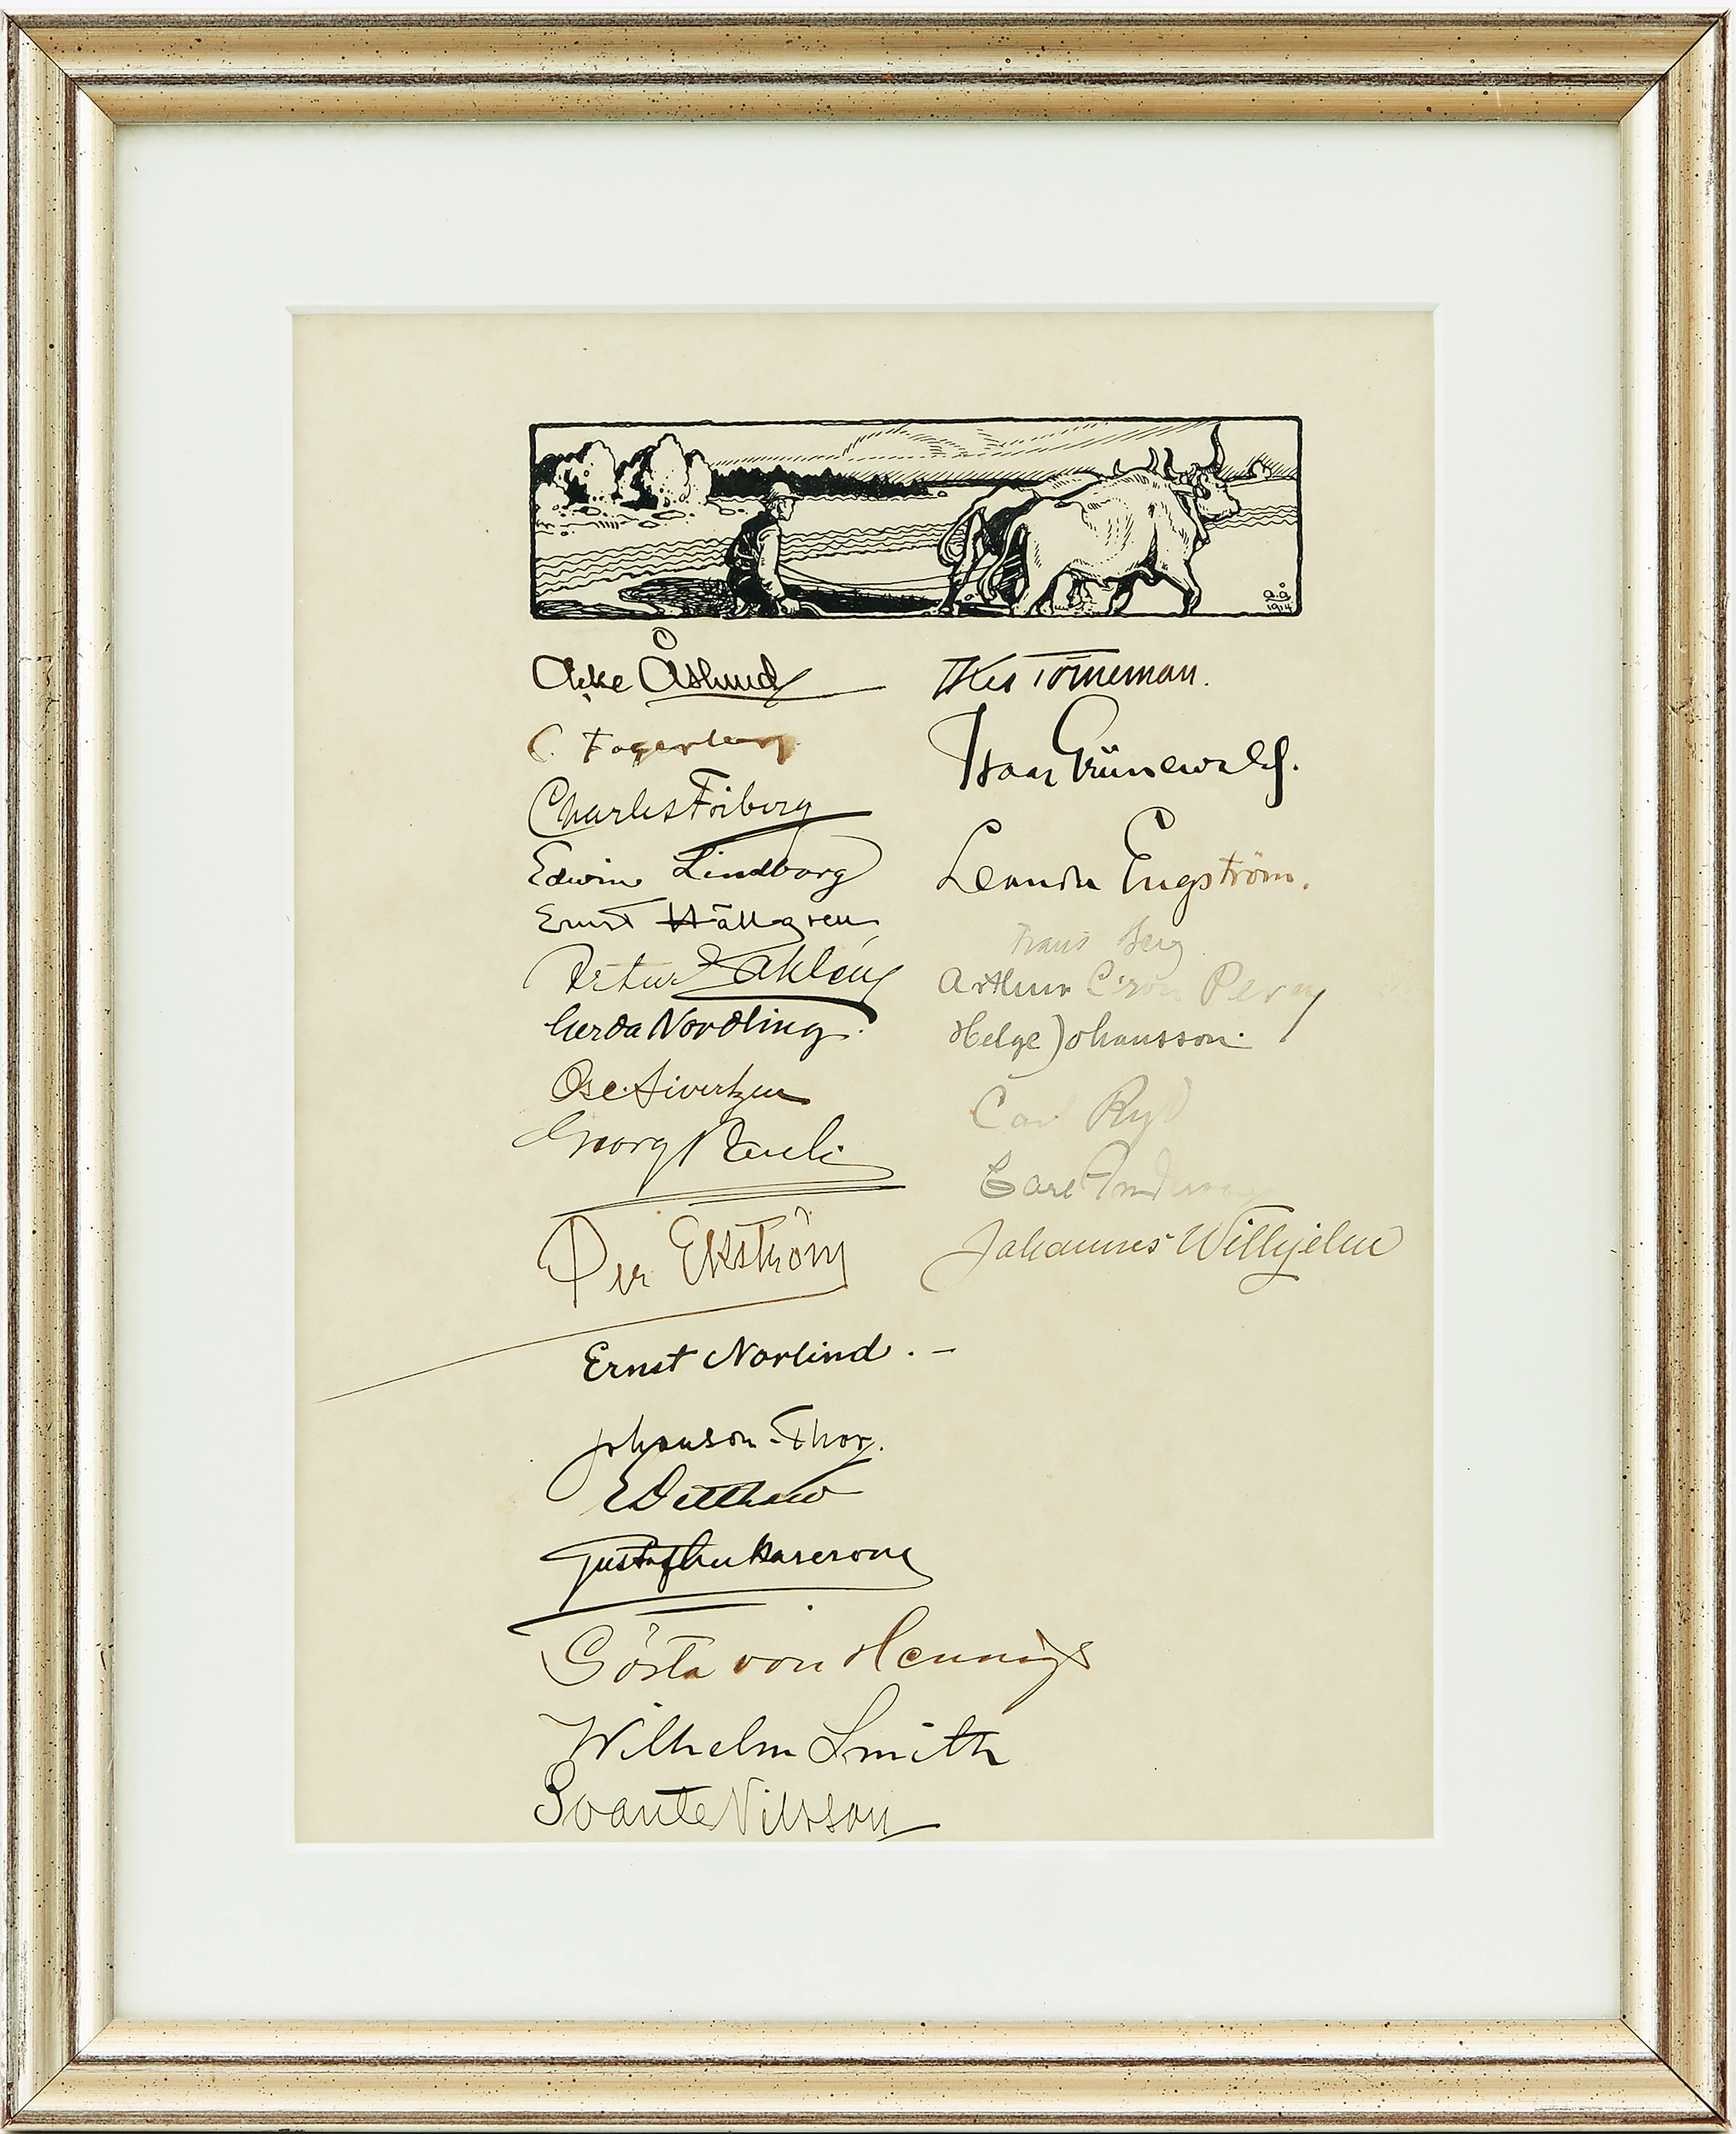 a.å
1914
Acke Åslund
C. Fagerberg
Charles Friberg
Edwin Lindborg
Ernst Hällgren
Artur Sahlén
Gerda Nordling.
Osc. Sivertzen
Georg Pauli
Per Ekström
Ernst Norlind. -
Johanson-Thor.
E Detthow
Gustaf
Gösta von Hennigs
Wilhelm Smith
Svante Nilsson
Axel Törneman.
Isaac Grünewald.
Leander Engström.
Frans Berg
Arthur Percy
Helge Johansson.
Carl Ryd
Carl
Johannes Wilhjelm